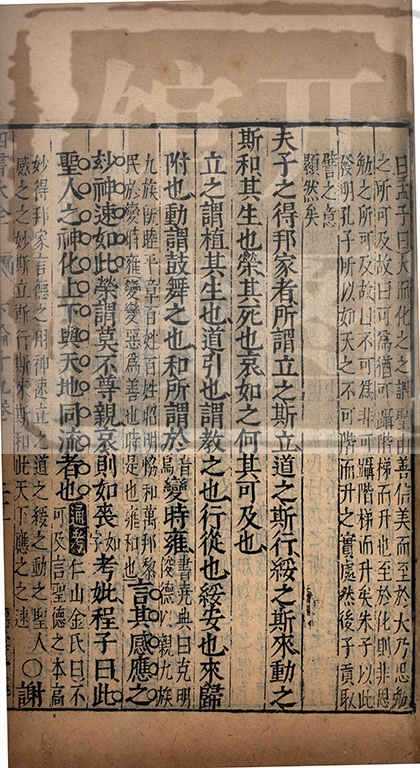 曰孟子曰大而化之之謂聖由善信美而至於大乃思勉
之所可及故曰可爲猶可躡階梯而升也至於化則非思
勉之所可及故曰不可爲非可躡階梯而升矣朱子以此
發明孔子所以如天之不可階而升之實處然後子貢取
譬之意
顯然矣
夫子之得邦家者所謂立之斯立道之斯行綏之斯來動之
斯和其生也榮其死也哀如之何其可及也
立之謂植其生也道引也謂教之也行從也綏安也來歸
附也動謂鼓舞之也和所謂於音烏變時雍書堯典曰克明俊德以親九族
九族既睦平章百姓百姓昭明恊和萬邦黎民於變時雍變變惡爲善也時是也雍和也言其感應之
玅神速如此榮謂莫不尊親哀則如喪考妣程子曰此
聖人之神化上下與天地同流者也通考仁山金氏曰不可及言聖德之本高
妙得邦家言德之用神速立之道之綏之動之聖人感之之妙斯立斯行斯來斯和此天下應之之速○謝
四書大全